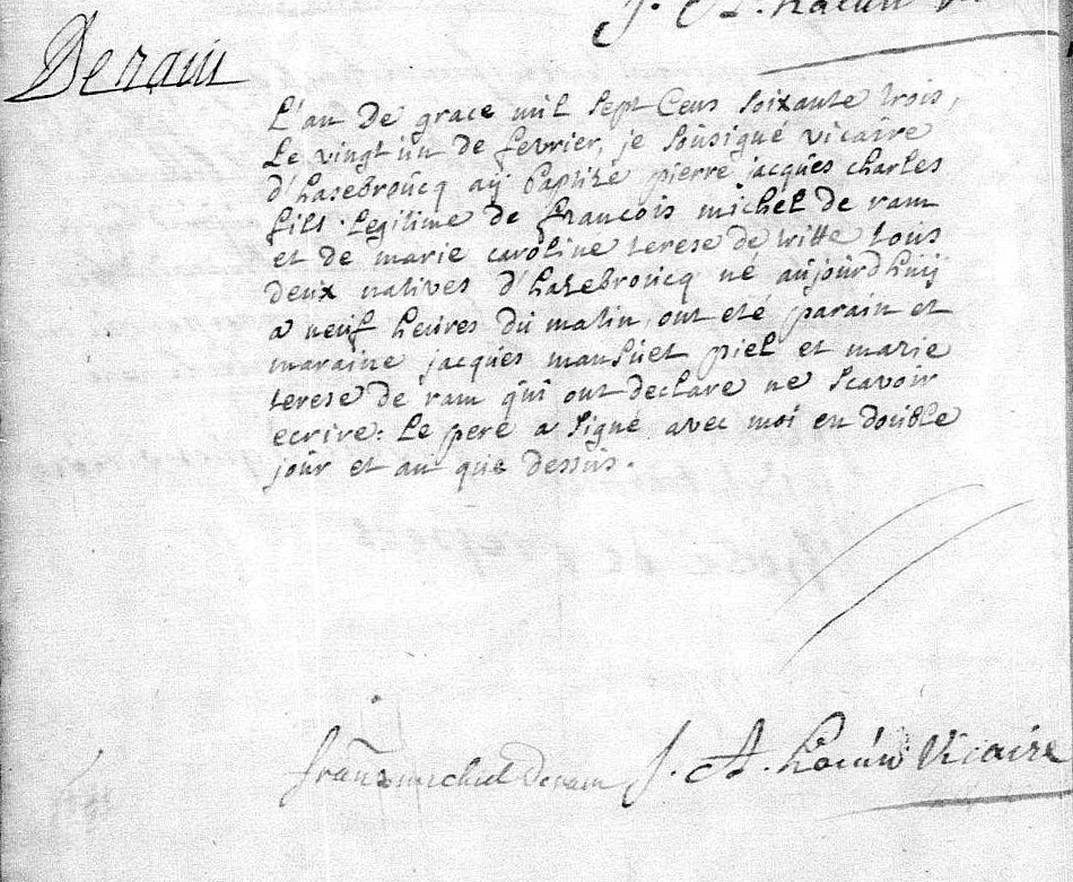 De ram
L'an de grace mil sept Cens soixante trois,
Le vingt un de fevrier, je soûsigné vicaire
d'hasebroûcq aÿ baptizé pierre jacqûes charles
fils Legitime de francois michel de ram
et de marie caroline terese de witte tous
deux natives d'hazebroucq né aujourd'huij
a neuf heures du matin, ont eté parain et
maraine jacques mansuet piel et marie
terese de ram qûi ont declare ne scavoir
ecrire: Le pere a signé avec moi en double
joûr et an que dessus.
franz michiel Deram J. A. Vicaire